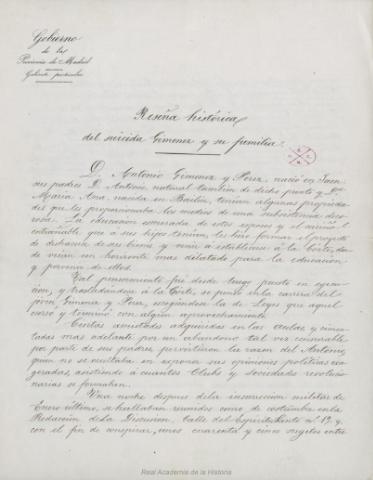 Gobierno
de la
Provincia de Madrid
Gabinete particular
Reseña histórica
del suicida Gimenez y su familia.
D. Antonio Gimenez y Perez, nació en Jaen
sus padres D. Antonio, natural tambien de dicho punto y D.ª
Maria Ana, nacida en Bailén, tenian algunas propieda-
des que les proporcionaba los medios de una subsistencia deco-
rosa. La educacion esmerada de estos esposos y el mismo
entrañable que á sus hijos tenian, les hizo formar el proyecto
de deshacerse de sus bienes y venir á establecerse á la Corte, don-
de veian un horizonte mas dilatado para la educacion
y porvenir de ellos.
Tal pensamiento fué desde luego puesto en ejecu-
cion, y trasladándose á la Corte, se pensó en la carrera del
joven Gimenez y Perez, escogiendo la de Leyes que aquel
cursó y terminó con algun aprovechamiento.
Ciertas amistades adquiridas en las aulas y aumen-
tadas mas adelante por un abandono tal vez censurable
por parte de sus padres pervirtieron la razon del Antonio,
quien no se ocultaba en esponer sus opiniones politicas exa-
geradas, asistiendo á cuantos Clubs y Sociedades revolucio-
narias se formaban.
Una noche despues de la insurreccion militar de
Enero último, se hallaban reunidos como de costumbre en la
Redaccion de La Discusion, Calle del Espiritu Santo nº 19 y
con el fin de conspirar, unos cuarenta y cinco sugetos entre
Real Academia de la Historia